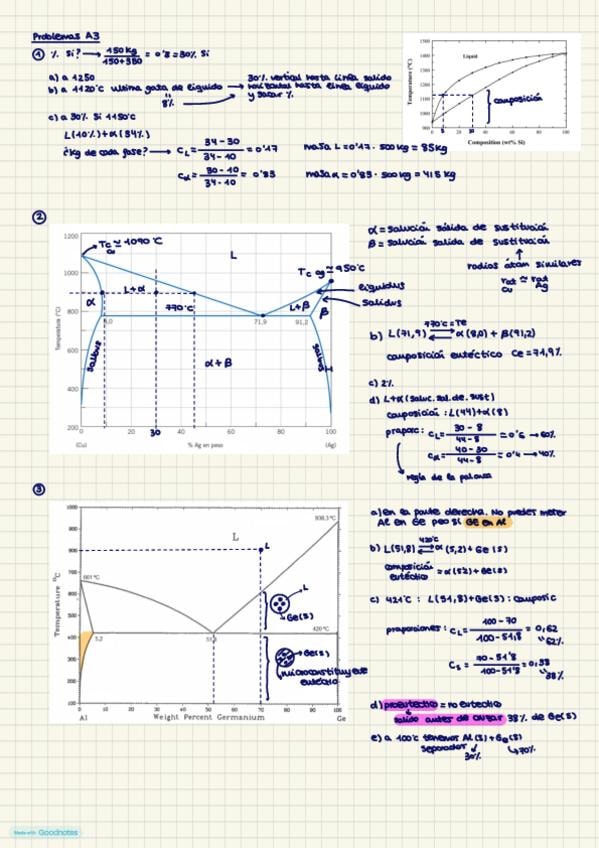 Problemas A3
① % Si? → 150 kg / 150+350 = 0'3 = 30% Si
a) a 1250
b) a 1120°C ultima gota de líquido → 30% vertical hasta linea solido
horizontal hasta linea líquido
y sacar %.
8%
c) a 30% Si 1150°C
L(10%)+α(34%)
¿kg de cada fase? → CL = 34-30 / 34-10 = 0'17 masa L = 0'17 · 500 kg = 85 kg
Cα = 30-10 / 34-10 = 0'83 masa α = 0'83 · 500 kg = 415 kg
Temperature (°C)
1500
1400
1300
1200
1100
1000
900
Liquid
composición
0 20 40 60 80 100
5 30
Composition (wt% Si)
②
Temperatura (°C)
1200
1000
800
600
400
200
Tc Cu ≃ 1090°C
L
Tc Ag ≃ 950°C
L+α
α
770°C
L+β
β
8,0
71,9
91,2
liquidus
solidus
solvus
α+β
solvus
0 20 30 40 60 80 100
(Cu) % Ag en peso (Ag)
α = solución sólida de sustitución
β = solución solida de sustitución
radios átom similares
rat Cu ≃ rat Ag
b) L(71,9) 770°C = Te ⇌ α(8,0) + β(91,2)
composición eutéctico Ce = 71,9%
c) 2%
d) L+α (soluc. sol. de. sust)
composición : L(44)+α(8)
proporc: CL = 30-8 / 44-8 = 0'6 → 60%
Cα = 40-30 / 44-8 = 0'4 → 40%
regla de la palanca
③
Temperature °C
1000
900
800
700
600
500
400
300
200
100
938.3 °C
L
L
661 °C
L
Ge(s)
5.2
420 °C
Ge(s)
microconstituyente
eutéctico
0 10 20 30 40 50 60 70 80 90 100
Al Weight Percent Germanium Ge
a) en la parte derecha. No puedes meter
Al en Ge pero sí Ge en Al
b) L(51,8) 420°C ⇌ α(5,2) + Ge(s)
composición
eutéctico = α(52) + Ge(s)
c) 421°C : L(51,8)+Ge(s) : composic
proporciones : CL = 100-70 / 100-51,8 = 0,62
62%
Cs = 70-51'8 / 100-51'8 = 0,38
38%
d) proeutectico = no eutectico
solido antes de cruzar 38% de Ge(s)
e) a 100°C tenemos Al(s)+Ge(s)
separados 30% 70%
Made with Goodnotes